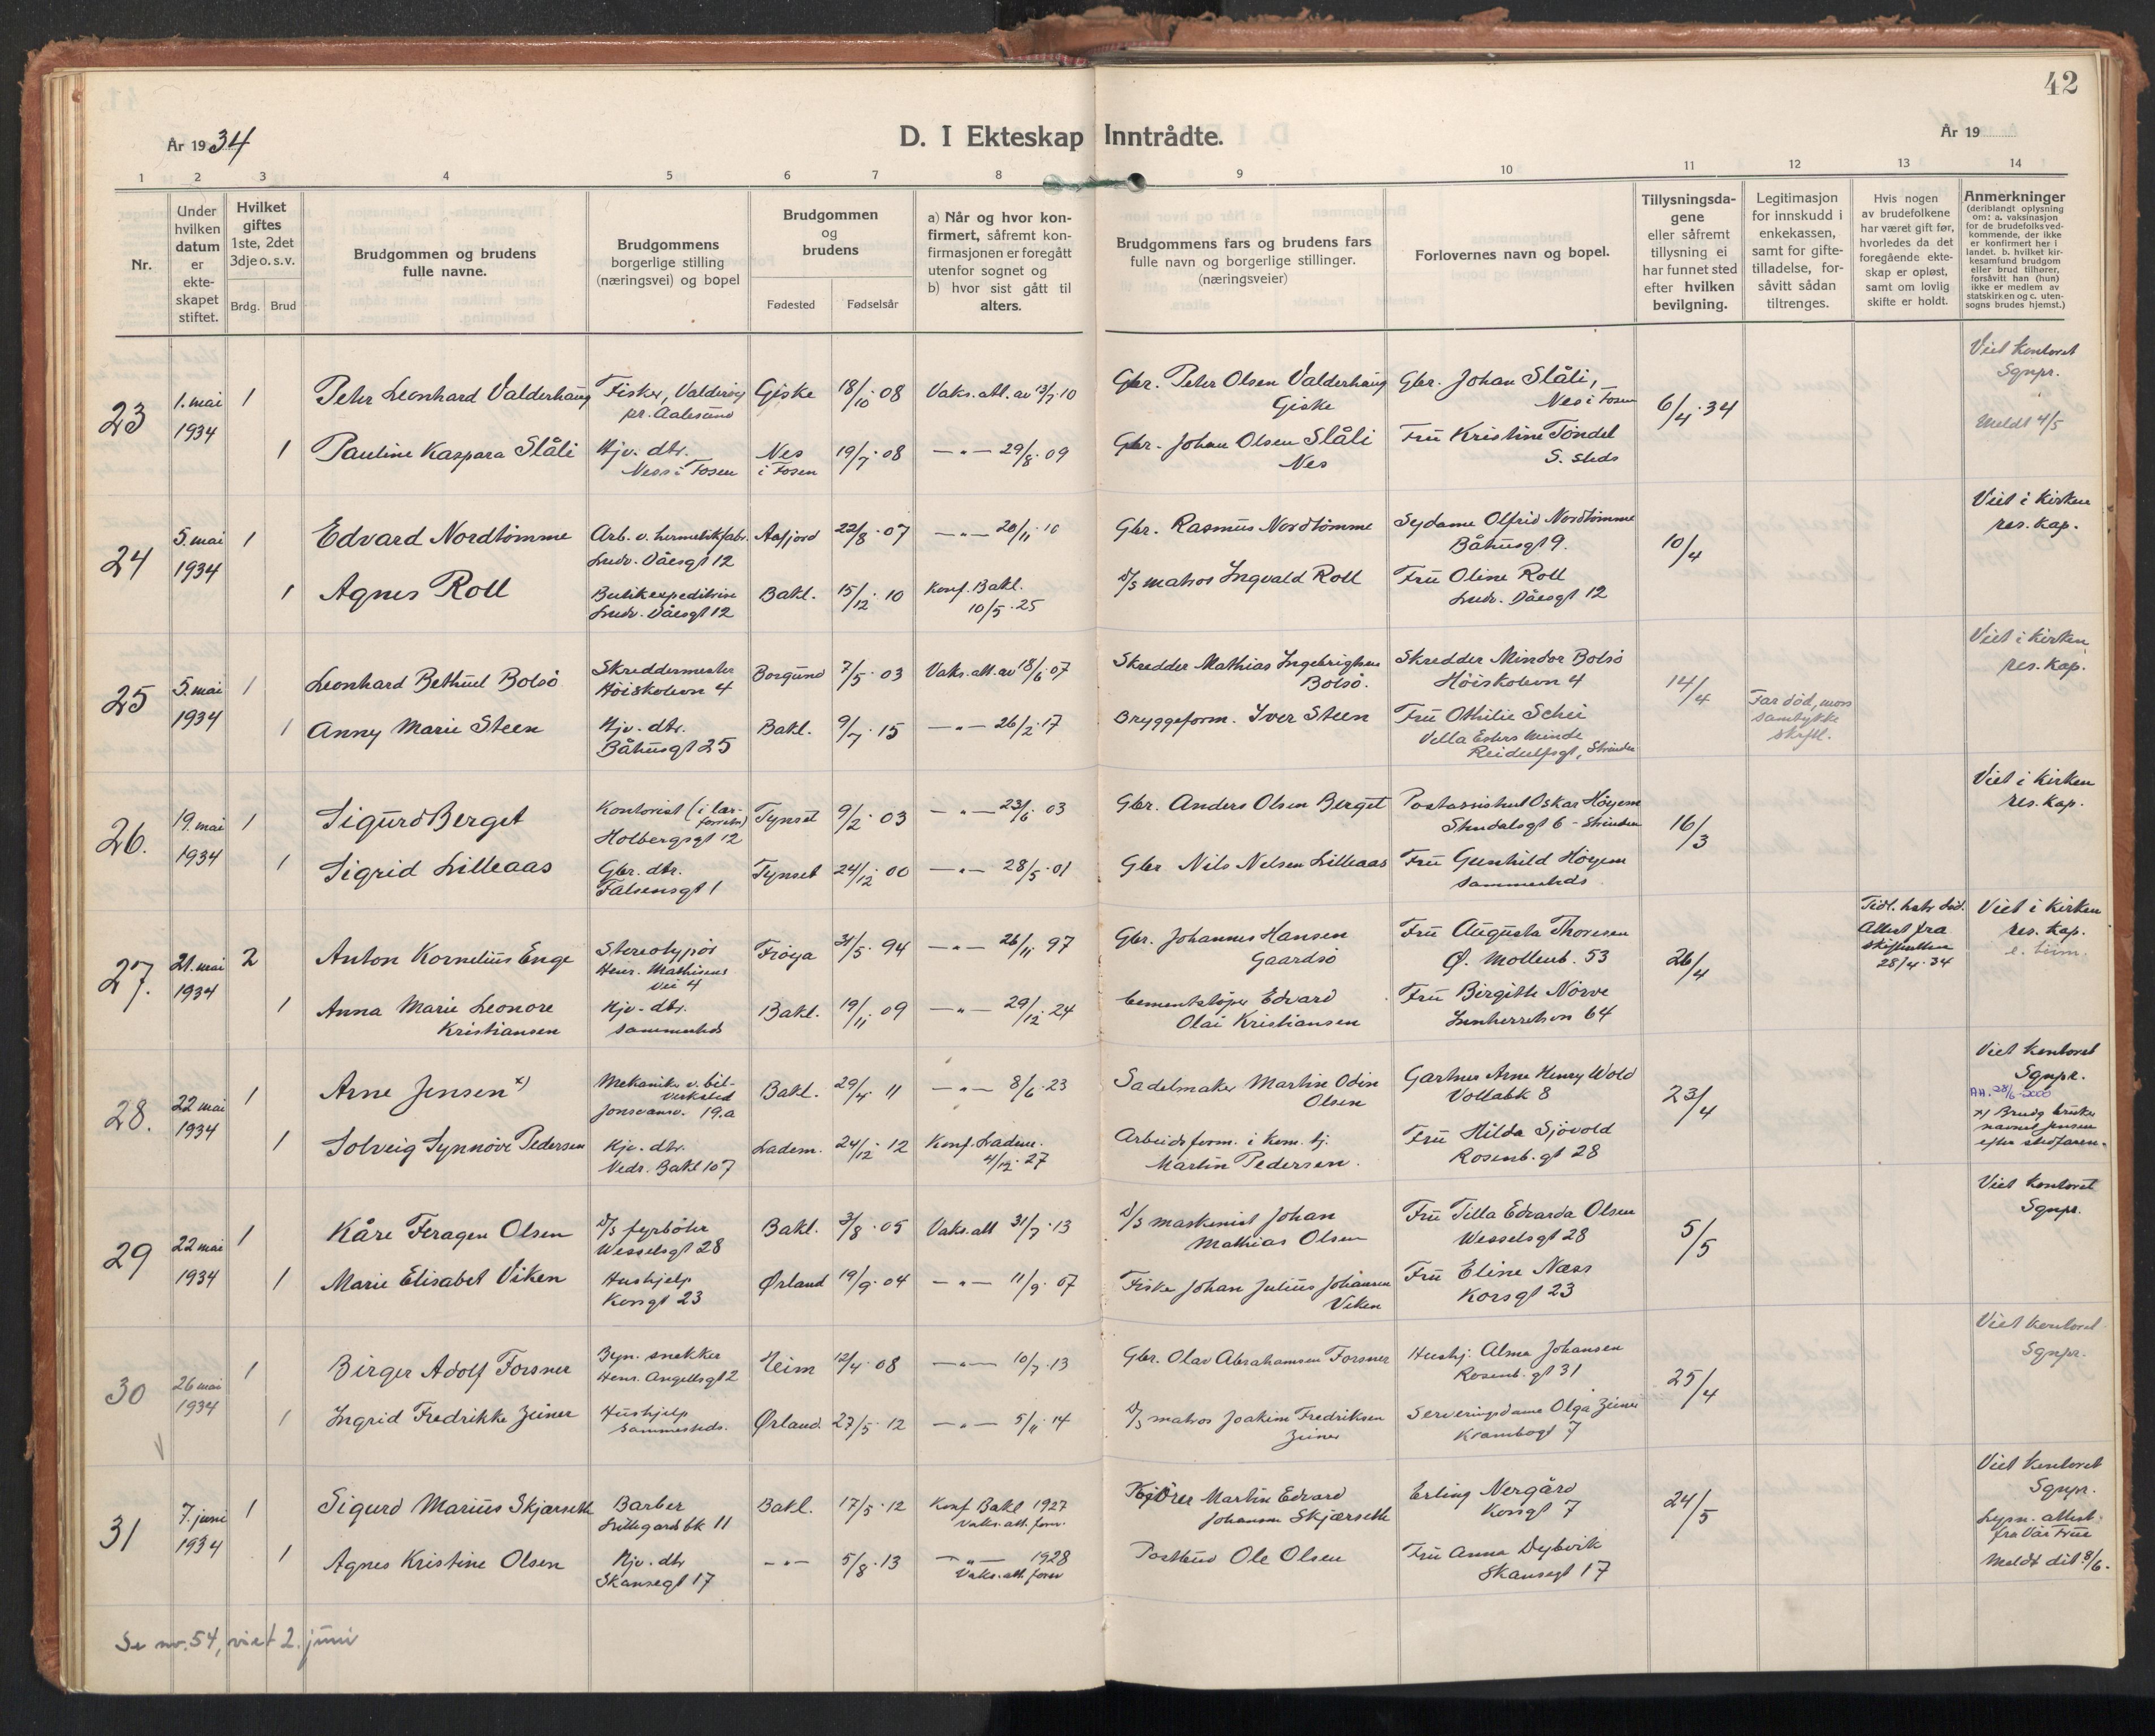 42
År 1934
D. I Ekteskap Inntrådte.
År 19
1 2 3 4 5 6 7 8 9 10 11 12 13 14
Nr.
Under hvilken datum er ekte- skapet stiftet.
Hvilket giftes 1ste, 2det 3dje o. s. v.
Brdg. Brud
Brudgommen og brudens fulle navne.
Brudgommens borgerlige stilling (næringsvei) og bopel
Brudgommen og brudens
Fødested Fødselsår
a) Når og hvor kon- firmert, såfremt kon- firmasjonen er foregått utenfor sognet og b) hvor sist gått til alters.
Brudgommens fars og brudens fars fulle navn og borgerlige stillinger. (næringsveier)
Forlovernes navn og bopel.
Tillysningsda- gene eller såfremt tillysning ei har funnet sted efter hvilken bevilgning.
Legitimasjon for innskudd i enkekassen, samt for gifte- tilladelse, for- såvitt sådan tiltrenges.
Hvis nogen av brudefolkene har været gift før, hvorledes da det foregående ekte- skap er opløst, samt om lovlig skifte er holdt.
Anmerkninger (deriblandt oplysning om: a. vaksinasjon for de brudefolks ved- kommende, der ikke er konfirmert her i landet. b. hvilket kir- kesamfund brudgom eller brud tilhører, forsåvitt han (hun) ikke er medlem av statskirken og c. uten- sogns brudes hjemst.)
23 1. mai 1934 1 Peter Leonhard Valderhaug Fisker, Valderøy pr. Aalesund Giske 18/10 08 Vaks. att. av 13/7 10 Gbr. Peter Olsen Valderhaug Giske Gbr. Johan Slåli, Nes i Fosen 6/4 34 Viet kontoret Sgnpr.
1 Pauline Kaspara Slåli Hjv. dtr. Ness i Fosen Nes i Fosen 19/7 08 —"— 29/8 09 Gbr. Johan Olsen Slåli Nes Fru Kristine Tøndel S. steds Meldt 4/5
24 5. mai 1934 1 Edvard Nordtømme Arb. v. hermetikfabr. Ludv. Dåesgt 12 Aafjord 22/8 07 —"— 20/11 10 Gbr. Rasmus Nordtømme Sydame Olfrid Nordtømme Båhusgt 9. 10/4 Viet i kirken res. kap.
1 Agnes Roll Butikexpeditrise Ludv. Dåesgt 12 Bakl. 15/12 10 Konf. Bakl. 10/5 25 D/S matros Ingvald Roll Fru Oline Roll Ludv. Dåesgt 12
25 5. mai 1934 1 Leonhard Bethuel Bolsø Skreddermester Høiskolevn 4 Borgund 7/5 03 Vaks. att. av 18/6 07 Skredder Mathias Ingebrigtsen Bolsø. Skredder Mindor Bolsø Høiskolevn 4 14/4 Viet i kirken res. kap.
1 Anny Marie Steen Hjv. dtr. Båhusgt 25 Bakl. 9/7 15 —"— 26/2 17 Bryggeform. Iver Steen Fru Othilie Schei Villa Esters Minde Reidulfsgt, Strinda Far død, mors samtykke skiftl.
26. 19. mai 1934 1 Sigurd Berget Kontorist (i lær- forretn) Holbergsgt 12 Tynset 9/2 03 —"— 23/6 03 Gbr. Anders Olsen Berget Postassistent Oskar Høyem Studalsgt 6 - Strinden 16/3 Viet i kirken res. kap.
1 Sigrid Lilleaas Gbr. dtr. Falsensgt 1 Tynset 24/12 00 —"— 28/5 01 Gbr Nils Nelsen Lilleaas Fru Gunhild Høyem sammesteds
27. 21. mai 1934 2 Anton Kornelius Enge Stereotypør Henr. Mathisens vei 4 Frøya 31/5 94 —"— 26/11 97 Gbr. Johannes Hansen Gaardsø Fru Augusta Thoresen Ø. Møllenb. 53 26/4 Tidl. hstr død. Attest fra skifteretten 28/4 34 Viet i kirken res. kap.
1 Anna Marie Leonore Kristiansen Hjv. dtr. sammesteds Bakl. 19/11 09 —"— 29/12 24 Cementstøper Edvard Olai Kristiansen Fru Birgithe Nørve Innherredsvn 64
28. 22 mai 1934 1 Arne Jensen x) Mekaniker v. bil- verksted Jonsvannsv. 19.a Bakl. 29/4 11 —"— 8/6 23 Sadelmaker Martin Odin Olsen Gartner Arne Henry Wold Vollabk 8 23/4 Viet kontoret Sgnpr.
x) Brudg bruker navnet Jensen efter stedfaren.
1 Solveig Synnøve Pedersen Hjv. dtr. Nedr. Bakl 107 Ladem. 24/12 12 Konf. Ladem. 4/12 27 Arbeidsform. i kom. tj. Martin Pedersen. Fru Hilda Sjøvold Rosenb. gt 28
29 22 mai 1934 1 Kåre Feragen Olsen D/S fyrbøter Wesselsgt 28 Bakl. 3/8 05 Vaks. att 31/7 13 D/S maskinist Johan Mathias Olsen Fru Tilla Edvarda Olsen Wesselsgt 28 5/5 Viet kontoret Sgnpr.
1 Marie Elisabet Viken Hushjelp Korsgt 23 Ørland 19/9 04 —"— 11/9 07 Fisker Johan Julius Johansen Viken Fru Eline Næss Korsgt 23
30 26 mai 1934 1 Birger Adolf Forsner Byn. snekker Henr. Angellsgt 2 Heim 12/4 08 —"— 10/7 13 Gbr. Olav Abrahamsen Forsner Hushj. Alma Johansen Rosenb. gt 31 25/4 Viet kontoret Sgnpr.
1 Ingrid Fredrikke Zeiner Hushjelp Sammesteds. Ørland. 27/5 12 —"— 5/11 14 D/S matros Joakim Fredriksen Zeiner Serveringsdame Olga Zeiner Krambogt 7
31 7. juni 1934 1 Sigurd Marius Skjærseth Barber Lillegårdsbk 11 Bakl. 17/5 12 Konf Bakl 1927 Vaks. att. forev. Kjører Martin Edvard Johansen Skjærseth Erling Nergård Korsgt 7 24/5 Viet kontoret Sgnpr.
Lysn. attest. fra Vår Frue
1 Agnes Kristine Olsen Hjv. dtr Skansegt 17 —"— 5/8 13 —"— 1928 Vaks. att. forev Postbud Ole Olsen Fru Anna Dybvik Skansegt 17 Meldt dit 8/6.
Se nr. 54, viet 2. juni